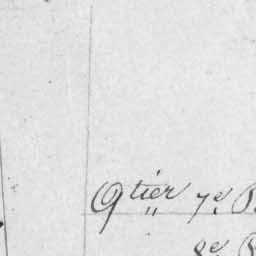 Qtier 7e
8e